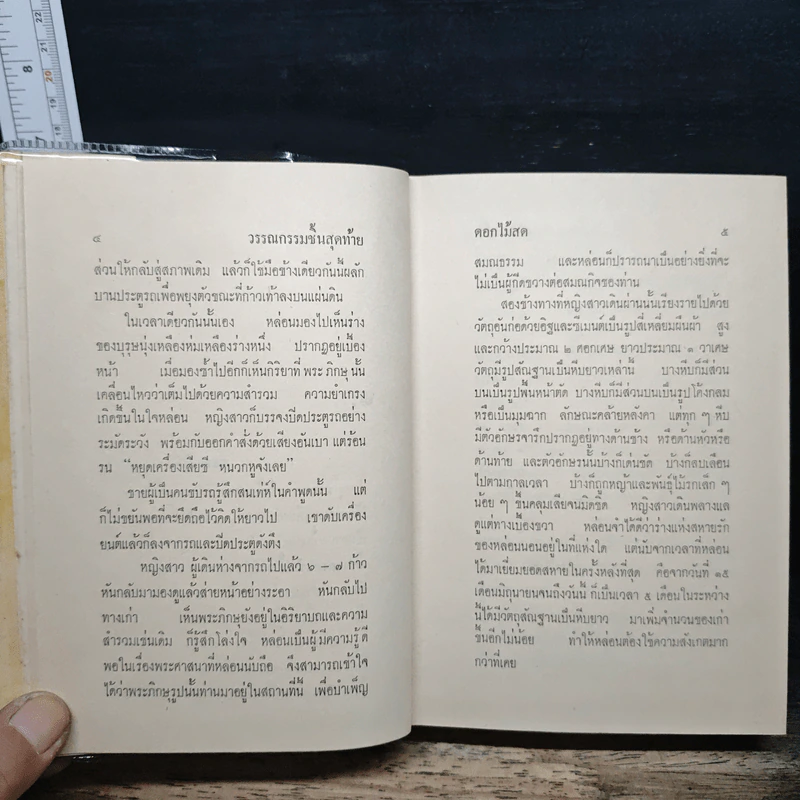 ๔ วรรณกรรมชิ้นสุดท้าย
ส่วนให้กลับสู่สภาพเดิม แล้วก็ใช้มือข้างเดียวกันนี้ผลัก
บานประตูรถเพื่อพยุงตัวขณะที่ก้าวเท้าลงบนแผ่นดิน
ในเวลาเดียวกันนั้นเอง หล่อนมองไปเห็นร่าง
ของบุรุษนุ่งเหลืองห่มเหลืองร่างหนึ่ง ปรากฏอยู่เบื้อง
หน้า เมื่อมองซ้ำไปอีกก็เห็นกิริยาที่พระภิกษุนั้น
เคลื่อนไหวว่าเต็มไปด้วยความสำรวม ความยำเกรง
เกิดขึ้นในใจหล่อน หญิงสาวก็บรรจงปิดประตูรถอย่าง
ระมัดระวัง พร้อมกับออกคำสั่งด้วยเสียงอันเบา แต่ร้อน
รน “หยุดเครื่องเสียซี หนวกหูจังเลย”
ชายผู้เป็นคนขับรถรู้สึกสนเท่ห์ในคำพูดนั้น แต่
ก็ไม่ขยันพอที่จะยึดถือไว้คิดให้ยาวไป เขาดับเครื่อง
ยนต์แล้วก็ลงจากรถและปิดประตูดังตึง
หญิงสาว ผู้เดินห่างจากรถไปแล้ว ๖ – ๗ ก้าว
หันกลับมามองดูแล้วส่ายหน้าอย่างระอา หันกลับไป
ทางเก่า เห็นพระภิกษุยังอยู่ในอิริยาบถและความ
สำรวมเช่นเดิม ก็รู้สึกโล่งใจ หล่อนเป็นผู้มีความรู้ดี
พอในเรื่องพระศาสนาที่หล่อนนับถือ จึงสามารถเข้าใจ
ได้ว่าพระภิกษุรูปนั้นท่านมาอยู่ในสถานที่นี้ เพื่อบำเพ็ญ
ดอกไม้สด ๕
สมณธรรม และหล่อนก็ปรารถนาเป็นอย่างยิ่งที่จะ
ไม่เป็นผู้กีดขวางต่อสมณกิจของท่าน
สองข้างทางที่หญิงสาวเดินผ่านนั้นเรียงรายไปด้วย
วัตถุอันก่อด้วยอิฐและซีเมนต์เป็นรูปสี่เหลี่ยมผืนผ้า สูง
และกว้างประมาณ ๒ ศอกเศษ ยาวประมาณ ๑ วาเศษ
วัตถุมีรูปสัณฐานเป็นหีบยาวเหล่านี้ บางหีบก็มีส่วน
บนเป็นรูปพื้นหน้าตัด บางหีบก็มีส่วนบนเป็นรูปโค้งกลม
หรือเป็นมุมฉาก ลักษณะคล้ายหลังคา แต่ทุก ๆ หีบ
มีตัวอักษรจารึกปรากฏอยู่ทางด้านข้าง หรือด้านหัวหรือ
ด้านท้าย และตัวอักษรนั้นบ้างก็เด่นชัด บ้างก็ลบเลือน
ไปตามกาลเวลา บ้างก็ถูกหญ้าและพันธุ์ไม้รกเล็ก ๆ
น้อย ๆ ขึ้นคลุมเสียจนมิดชิด หญิงสาวเดินพลางแล
ดูแต่ทางเบื้องขวา หล่อนจำได้ดีว่าร่างแห่งสหายรัก
ของหล่อนนอนอยู่ในที่แห่งใด แต่นับจากเวลาที่หล่อน
ได้มาเยี่ยมยอดสหายในครั้งหลังที่สุด คือจากวันที่ ๑๕
เดือนมิถุนายนจนถึงวันนี้ ก็เป็นเวลา ๕ เดือนในระหว่าง
นี้ได้มีวัตถุสัณฐานเป็นหีบยาว มาเพิ่มจำนวนของเก่า
ขึ้นอีกไม่น้อย ทำให้หล่อนต้องใช้ความสังเกตมาก
กว่าที่เคย
8
22
21
20
19
18